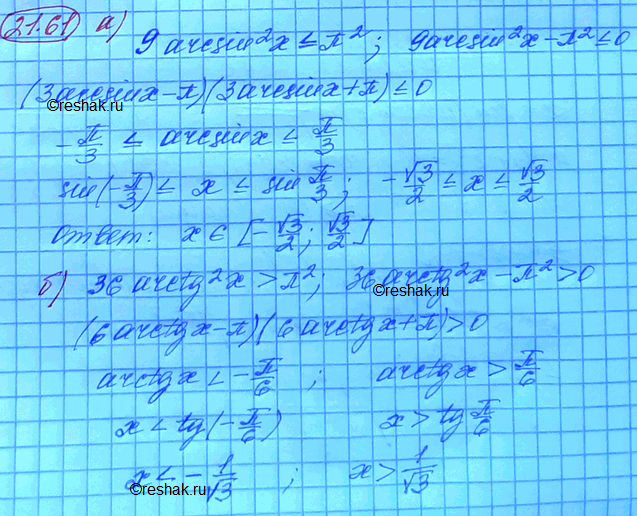 21.61 а) 9 arcsin²x ≤ π²; 9arcsin²x − π² ≤ 0
(3arcsinx − π)(3arcsinx + π) ≤ 0
©reshak.ru
−π/3 ≤ arcsinx ≤ π/3
sin(−π/3) ≤ x ≤ sin π/3; −√3/2 ≤ x ≤ √3/2
ответ: x ∈ [−√3/2; √3/2]
б) 36 arctg²x > π²; 36arctg²x − π² > 0
©reshak.ru
(6arctgx − π)(6arctgx + π) > 0
arctgx < −π/6; arctgx > π/6
x < tg(−π/6) x > tg π/6
x < −1/√3; x > 1/√3
©reshak.ru